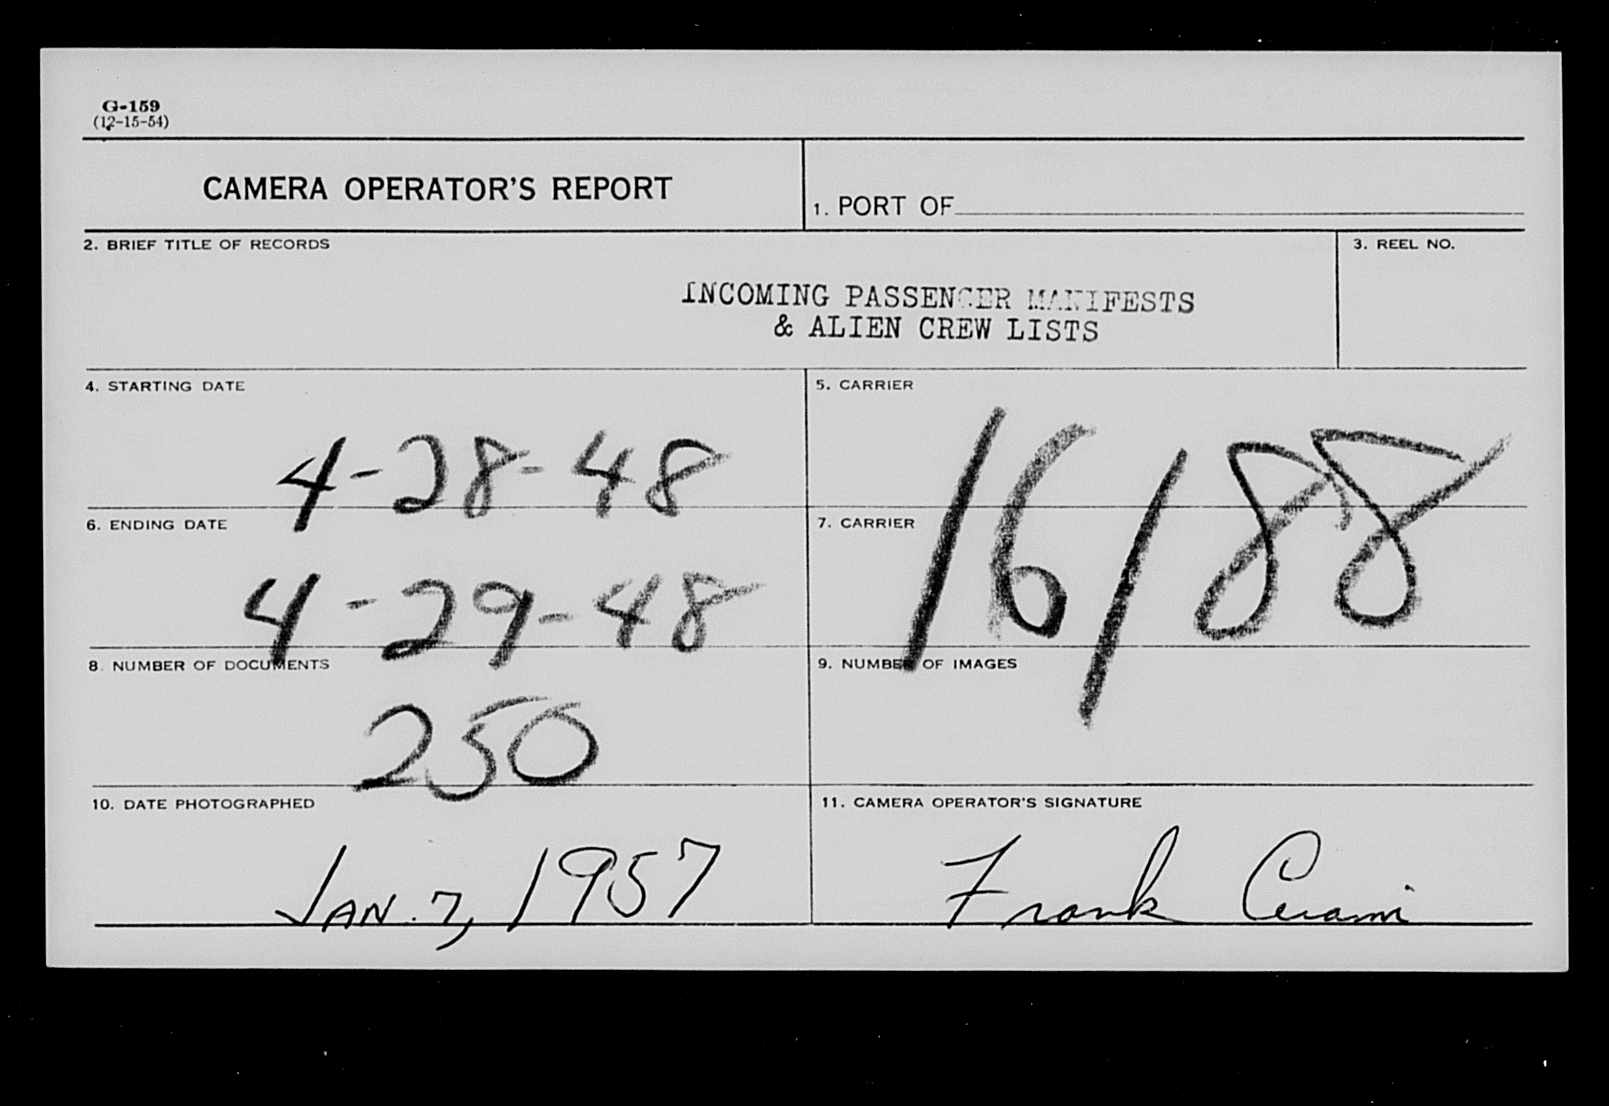 G-159
(12-15-54)
CAMERA OPERATOR'S REPORT
1. PORT OF
2. BRIEF TITLE OF RECORDS
3. REEL NO.
INCOMING PASSENGER MANIFESTS
& ALIEN CREW LISTS
4. STARTING DATE
5. CARRIER
4-28-48
16188
6. ENDING DATE
7. CARRIER
4-29-48
8. NUMBER OF DOCUMENTS
9. NUMBER OF IMAGES
250
10. DATE PHOTOGRAPHED
11. CAMERA OPERATOR'S SIGNATURE
JAN. 7, 1957
Frank Cerami